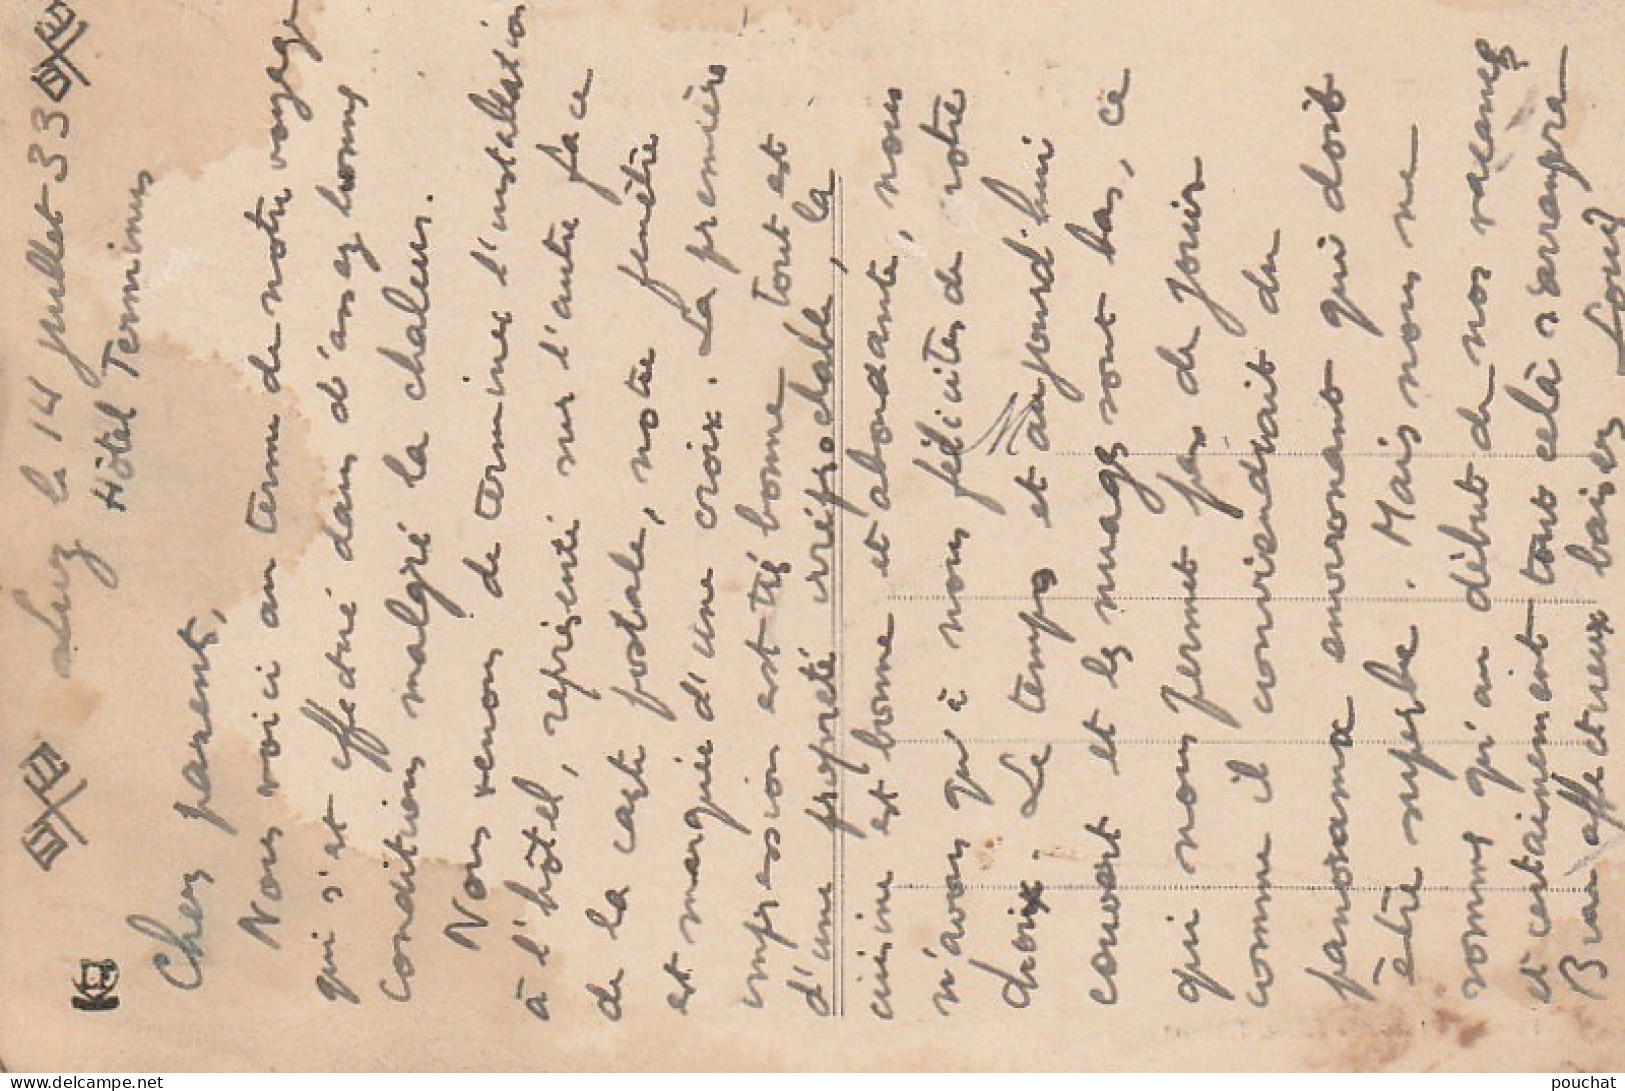 Luz le 14 juillet 33
Hôtel Terminus
Chers parents,
Nous voici au terme de notre voyage
qui s'est effectué dans d'assez bonnes
conditions malgré la chaleur.
Nous venons de terminer l'installation
à l'hôtel, représenté sur l'autre face
de la carte postale, notre fenêtre
est marquée d'une croix. La première
impression est très bonne tout est
d'une propreté irréprochable, la
cuisine est bonne et abondante, nous
n'avons qu'à nous féliciter de votre
choix. Le temps et aujourd'hui
M
couvert et les nuages sont bas, ce
qui nous permet pas de jouir
comme il conviendrait du
panorama environnant qui doit
être superbe. Mais nous ne
sommes qu'au début de nos vacances
et certainement tout celà s'arrangera
Bien affectueux baisers Louis
www.delcampe.net
pouchat